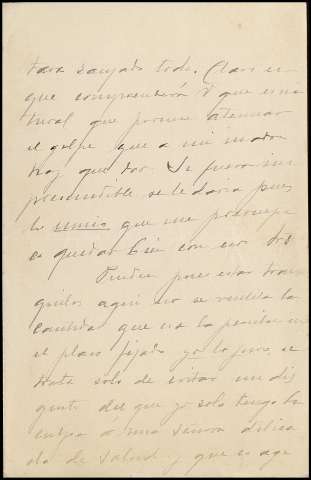 para zanjado todo. Claro es
que comprenderá V que es na
tural que procure atenuar
el golpe que a mi madre
hay que dar. Si fuera im
prescindible se le daria pues
lo unico que me preocupa
es quedar bien con eso
Pueden pues estar tran
quilos aqui no se rendira la
cantidad que no la perciba en
el plazo fijado yo lo juro, se
trata solo de evitar un dis
gusto del que yo solo tengo la
culpa á una señora delica
da de salud y que es